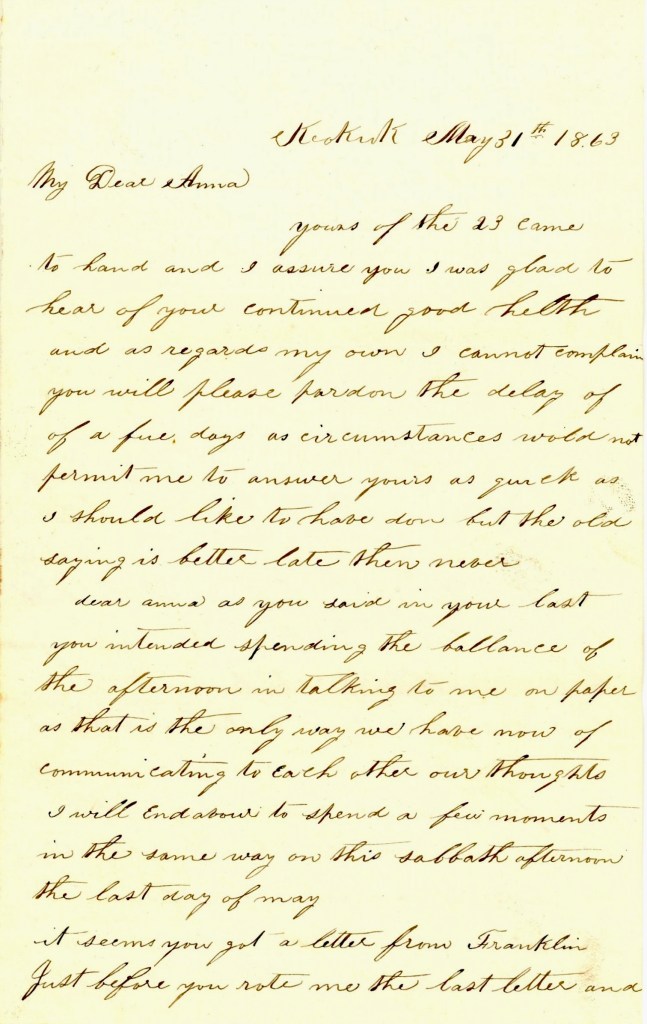 Keokuk May 31th 1863
My Dear Anna
yours of the 23 came
to hand and I assure you I was glad to
hear of your continued good helth
and as regards my own I cannot complain
you will please pardon the delay of
of a fue, days as circumstances wold not
permit me to answer yours as quick as
I should like to have don but the old
saying is better late then never
dear anna as you said in your last
you intended spending the ballance of
the afternoon in talking to me on paper
as that is the only way we have now of
communicating to each other our thoughts
I will Endavour to spend a few moments
in the same way on this sabbath afternoon
the last day of may
it seems you got a letter from Franklin
Just before you rote me the last letter and